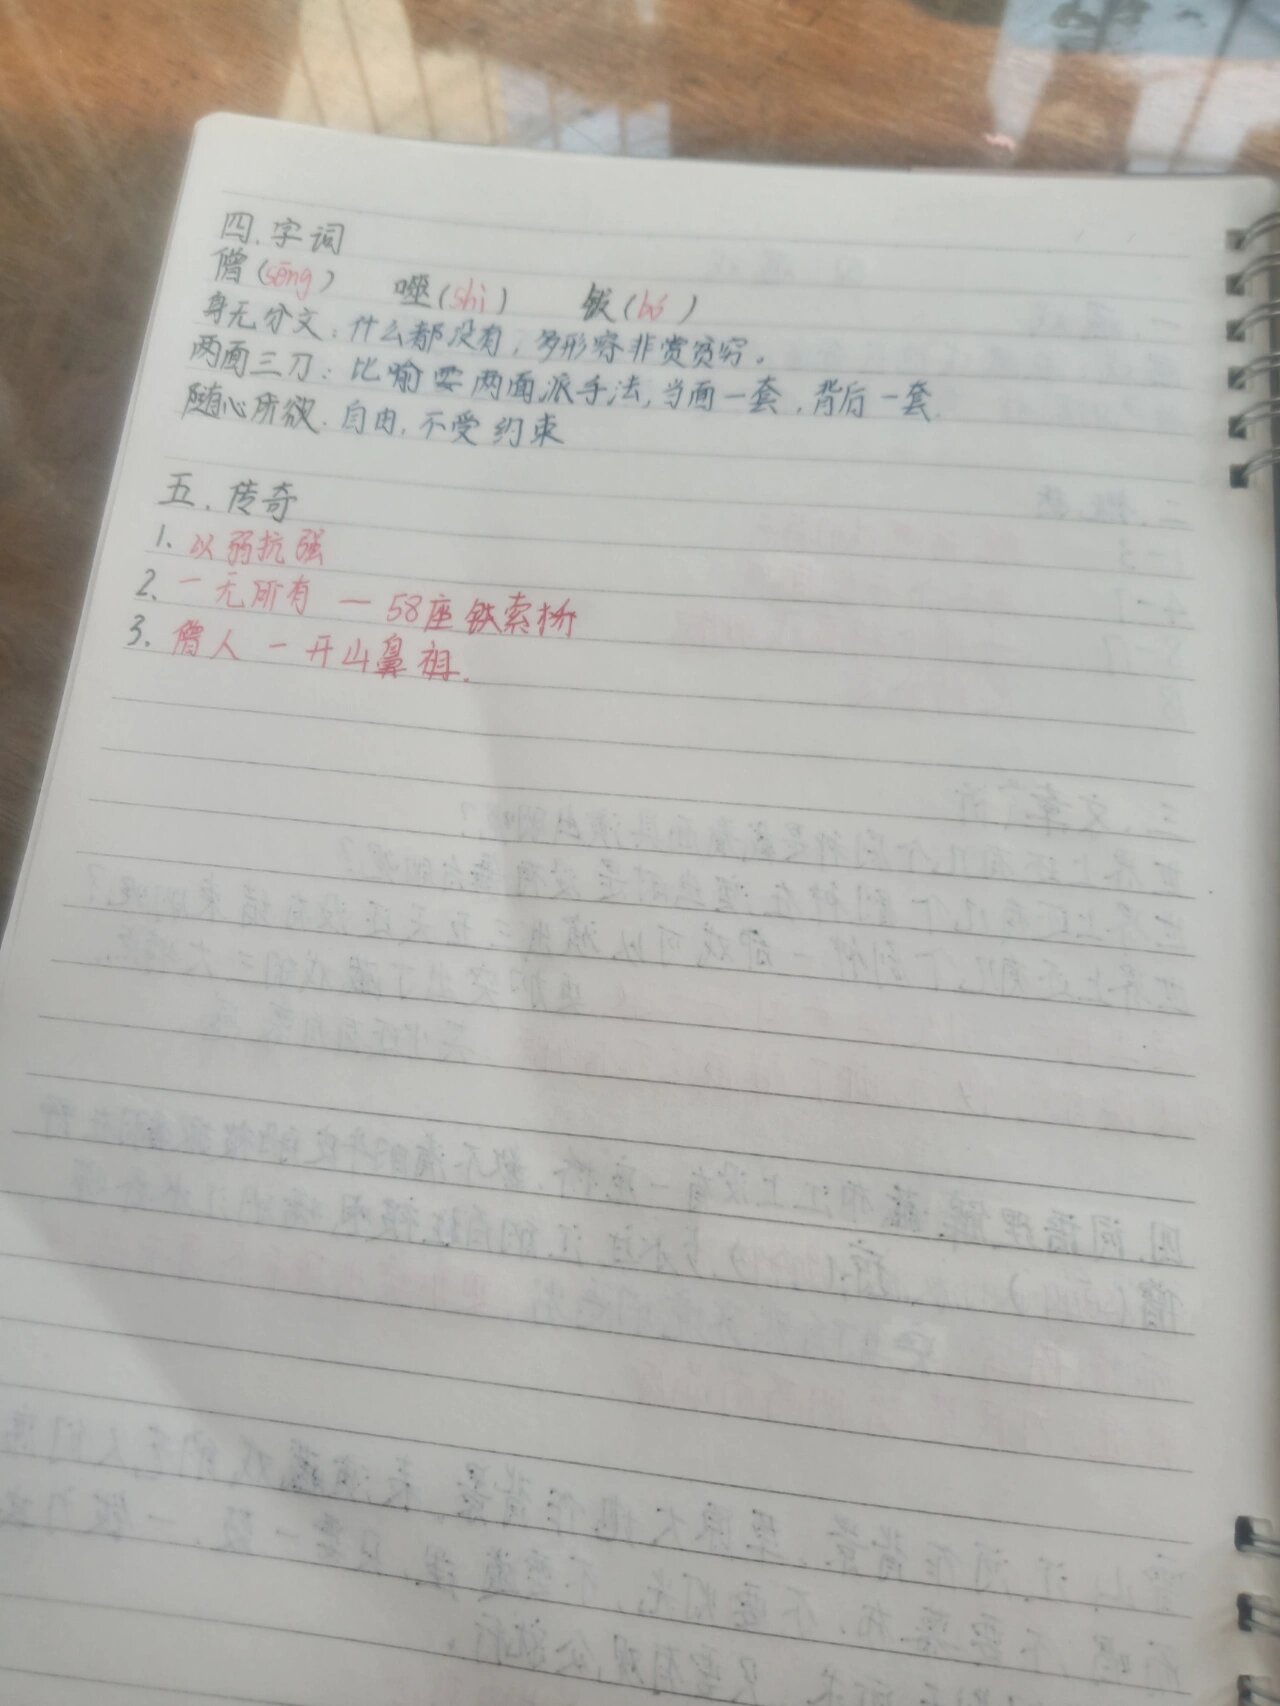 四.字词
僧(sēng) 噬(shì) 钹(bó)
身无分文:什么都没有,多形容非常贫穷。
两面三刀:比喻耍两面派手法,当面一套,背后一套.
随心所欲.自由,不受约束
五.传奇
1、以弱抗强
2、一无所有—58座铁索桥
3、僧人—开山鼻祖.